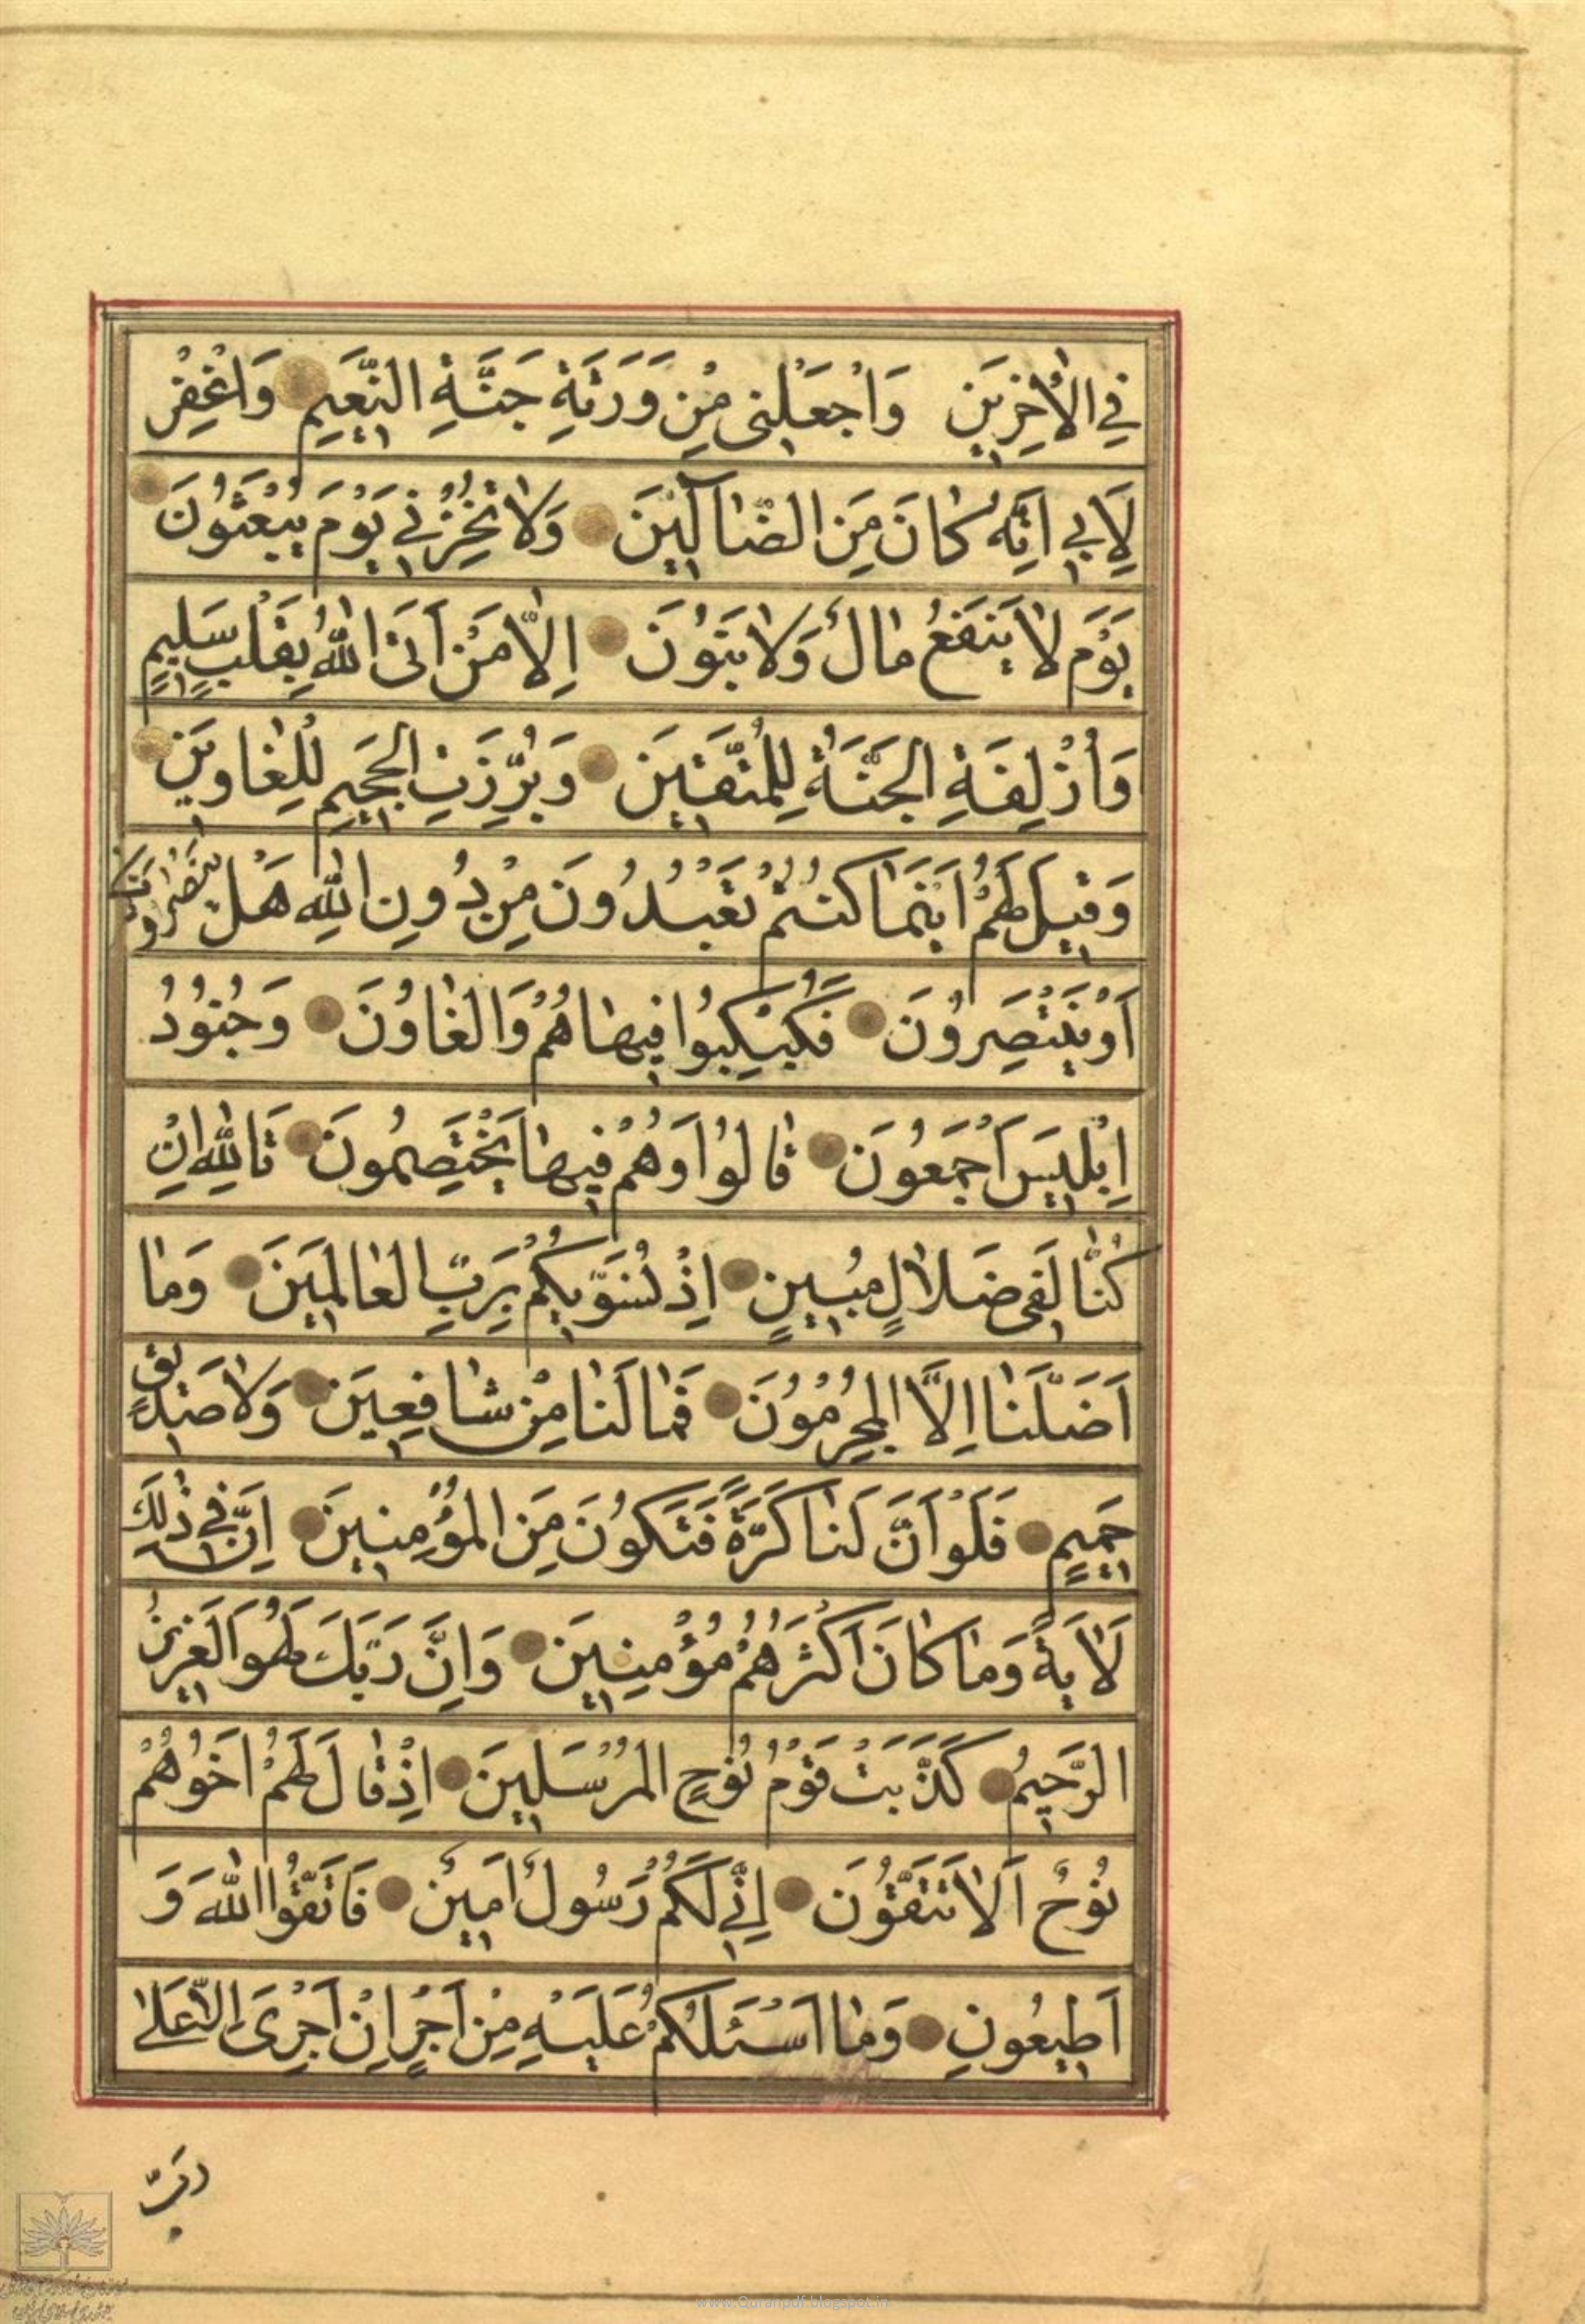 فِي الْاٰخِرِينَ وَاجْعَلْنِى مِنْ وَرَثَةِ جَنَّةِ النَّعِيمِ وَاغْفِرْ
لِاَبِي اِنَّهُ كَانَ مِنَ الضَّاۤلِّينَ وَلَا تُخْزِنِي يَوْمَ يُبْعَثُونَ
يَوْمَ لَا يَنْفَعُ مَالٌ وَلَا بَنُونَ اِلَّا مَنْ اَتَى اللّٰهَ بِقَلْبٍ سَلِيمٍ
وَاُزْلِفَةِ الْجَنَّةُ لِلْمُتَّقِينَ وَبُرِّزَتِ الْجَحِيمُ لِلْغَاوِينَ
وَقِيلَ لَهُمْ اَيْنَمَا كُنْتُمْ تَعْبُدُونَ مِنْ دُونِ اللّٰهِ هَلْ يَنْصُرُونَكُمْ
اَوْ يَنْتَصِرُونَ فَكُبْكِبُوا فِيهَا هُمْ وَالْغَاوُنَ وَجُنُودُ
اِبْلِيسَ اَجْمَعُونَ قَالُوا وَهُمْ فِيهَا يَخْتَصِمُونَ تَاللّٰهِ اِنْ
كُنَّا لَفِى ضَلَالٍ مُبِينٍ اِذْ نُسَوِّيكُمْ بِرَبِّ الْعَالَمِينَ وَمَا
اَضَلَّنَا اِلَّا الْمُجْرِمُونَ فَمَا لَنَا مِنْ شَافِعِينَ وَلَا صَدِيقٍ
حَمِيمٍ فَلَوْ اَنَّ لَنَا كَرَّةً فَنَكُونَ مِنَ الْمُؤْمِنِينَ اِنَّ فِي ذٰلِكَ
لَاٰيَةً وَمَا كَانَ اَكْثَرُهُمْ مُؤْمِنِينَ وَاِنَّ رَبَّكَ لَهُوَ الْعَزِيزُ
الرَّحِيمُ كَذَّبَتْ قَوْمُ نُوحٍ الْمُرْسَلِينَ اِذْ قَالَ لَهُمْ اَخُوهُمْ
نُوحٌ اَلَا تَتَّقُونَ اِنِّي لَكُمْ رَسُولٌ اَمِينٌ فَاتَّقُوا اللّٰهَ وَ
اَطِيعُونِ وَمَا اَسْـَٔلُكُمْ عَلَيْهِ مِنْ اَجْرٍ اِنْ اَجْرِىَ اِلَّا عَلٰى
رَبِّ
www.Quranpdf.blogspot.in